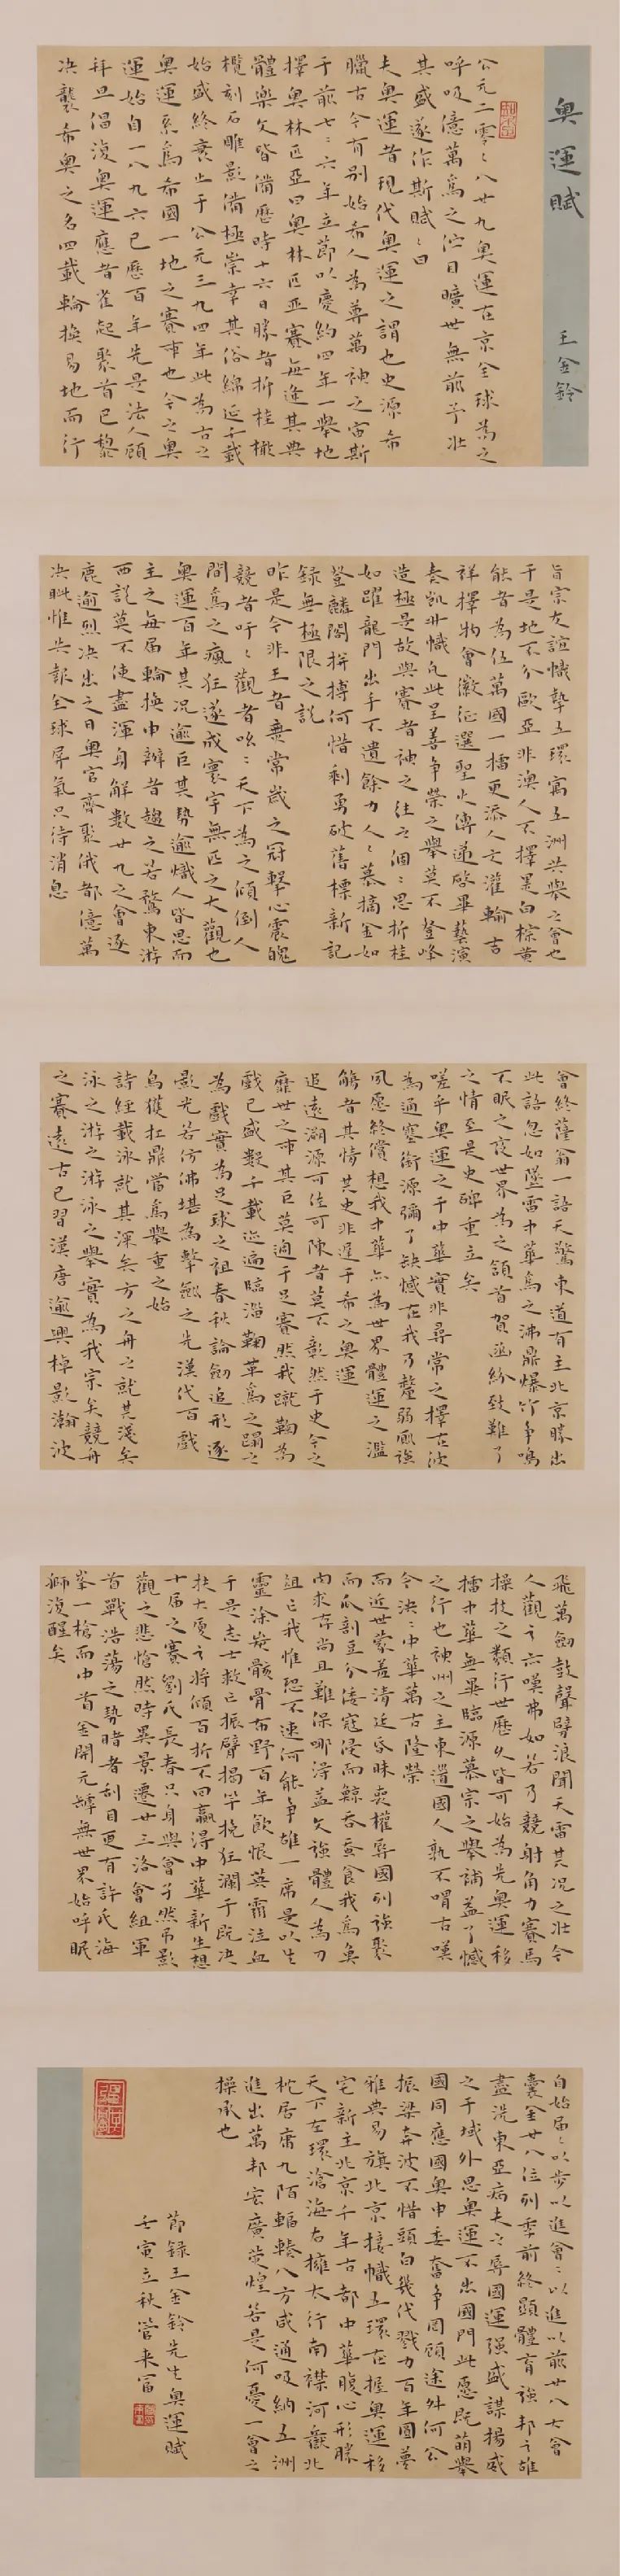 奥運賦
王金鈴
公元二零零八廿九奥運在京全球為之
呼吸億萬為之伫目曠世無前予壮
其盛遂作斯賦賦曰
夫奥運者現代奥運之謂也史源希
臘古今有别始希人為尊萬神之宙斯
于前七七六年立節以慶約四年一舉地
擇奥林匹亞曰奥林匹亞賽每逢其典
體樂文皆備歷時十六日勝者折桂橄
欖刻石雕影備極崇幸其俗綿延千載
始盛終衰止于公元三九四年此為古之
奥運系爲希國一地之賽事也今之奥
運始自一八九六已歷百年先是法人顧
拜旦倡復奥運應者雀起聚首巴黎
决襲希奥之名四載輪換易地而行
旨宗友誼幟摯五環寓五洲共舉之會也
于是地不分歐亞非澳人不擇黑白棕黄
能者為伍萬國一擂更添人文灌輪吉
祥擇物會徽征選聖火傳遞啓畢藝演
奏凱升幟凡此呈善争榮之舉莫不登峰
造極是故與賽者神之往之個個思折桂
如躍龍門出手不遺餘力人人慕摘金如
登麟閣拼搏何惜剩勇破舊標新記
録無極限之説
昨是今非王者無常歲之冠擊心震魄
競者吁吁觀者咻咻天下為之傾倒人
間爲之瘋狂遂成寰宇無匹之大觀也
奥運百年其况逾巨其勢逾熾人皆思而
主之每届輪換申辦者趨之若鶩東游
西説莫不使盡渾身解數廿九之會逐
鹿逾烈决出之日奥官齊聚俄都億萬
決眦惟共報全球屏氣只待消息
會終薩翁一語天驚東道有主北京勝出
此語忽如墜雷中華爲之沸鼎爆竹争鳴
不眠之夜世界為之頷首賀函紛致難了
之情至是史碑重立矣
嗟乎奥運之于中華實非尋常之擇在彼
為通塞銜源彌了缺憾在我乃釐弱風强
夙愿終償想我中華亦為世界體運之濫
觴者其情其史非遲于希之奥運
追遠溯源可佐可陳者莫不彰然于史今之
靡世之事其巨莫過于足賽然我蹴鞠為
戲已盛數千載巡遍臨淄鞠革爲之蹋之
為戲實為足球之祖春秋論劍追形逐
影光若彷佛堪為擊劍之先漢代百戲
烏獲扛鼎當爲舉重之始
詩經載泳就其深矣方之舟之就其淺矣
泳之游之游泳之舉實為我宗矣競舟
之賽遠古已習漢唐逾興棹影瀚波
飛萬劍鼓聲劈浪聞天雷其况之壮今
人觀之亦嘆弗如若乃競射角力賽馬
操技之類行世歷久皆可始為先奥運移
擂中華無異臨源慕宗之舉補益了憾
之行也神州之主東道國人孰不喟古嘆
今泱泱中華萬古隆榮
而近世蒙羞清廷昏昧喪權辱國列强聚
而瓜剖豆分倭寇侵而鯨吞蚕食我爲魚
肉求存尚且難保哪得益欠强體人為刀
俎亡我惟恐不速何能争雄一席是以生
靈涂炭骸骨布野百年飲恨英霜泣血
于是志士救亡振臂揭竿挽狂瀾于既决
扶大厦之將傾百折不回贏得中華新生想
十届之賽劉氏長春只身與會孑然吊影
觀之悲愴然時異景遷廿三洛會組軍
首戰浩蕩之勢睹者刮目更有許氏海
峯一槍而中首金開元罅無世界始呼眠
獅復醒矣
自始届届以步以進會會以進以前廿八大會
囊金廿八位列季前終顯體育强邦之雄
盡洗東亞病夫之辱國運强盛謀揚威
之于域外思奥運不出國門此愿既萌舉
國同應國奥申委奮争回顧途舛何公
振梁奔波不惜頭白幾代戮力百年圓夢
雅典易旗北京接幟五環在握奥運移
宅新主北京千年古都中華腹心形勝
天下左環滄海右擁太行南襟河嶽北
枕居庸九陌輻轃八方咸通吸納五洲
進出萬邦宏廣熒煌若是何憂一會之
操承也
節録王金鈴先生奥運賦
壬寅立秋管来富